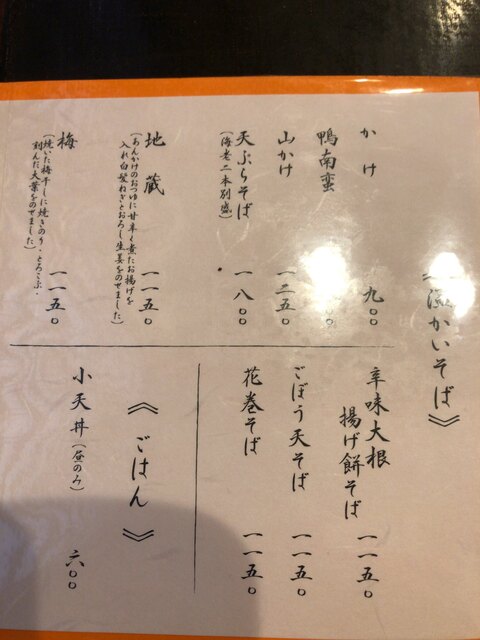 温かいそば》
かけ 九〇〇
鴨南蛮
山かけ 一二五〇
天ぷらそば 一八〇〇
(海老二本別盛)
地蔵 一一五〇
(あんかけのおつゆに甘辛く煮たお揚げを
入れ白髪ねぎとおろし生姜をのせました)
梅 一一五〇
(焼いた梅干しに焼きのり・とろろこぶ・
刻んだ大葉をのせました)
辛味大根
揚げ餅そば 一一五〇
ごぼう天そば 一一五〇
花巻そば 一一五〇
《ごはん》
小天丼(昼のみ) 六〇〇